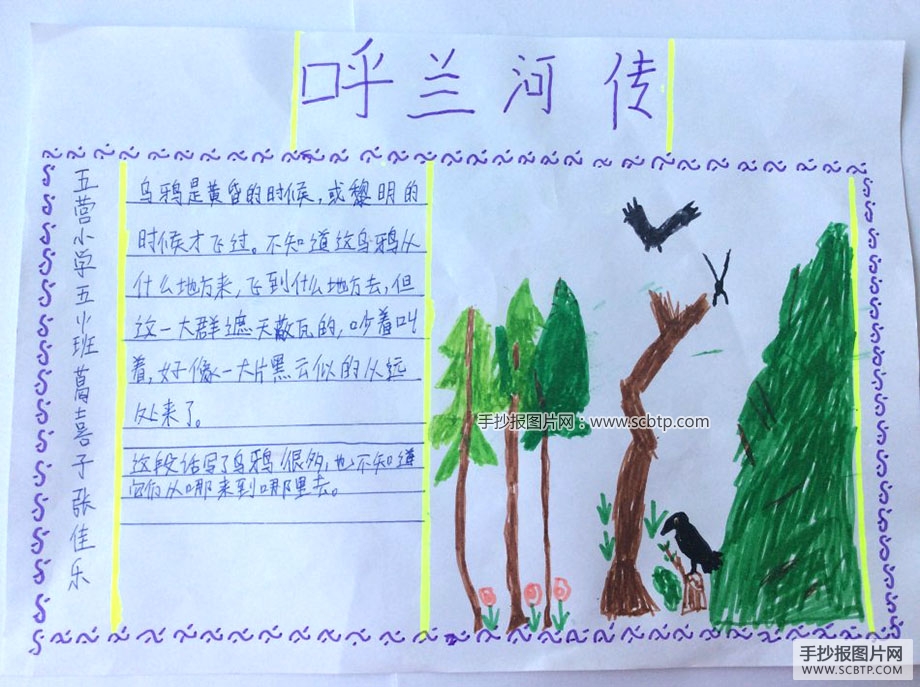 呼兰河传
五营小学五小班葛喜子张佳乐
乌鸦是黄昏的时候,或黎明的
时候才飞过。不知道这乌鸦从
什么地方来,飞到什么地方去,但
这一大群遮天蔽瓦的,吵着叫
着,好像一大片黑云似的从远
处来了。
这段话写了乌鸦很多,也不知道
它们从哪来到哪里去。
手抄报图片网:www.scbtp.com
手抄报图片网
WWW.SCBTP.COM